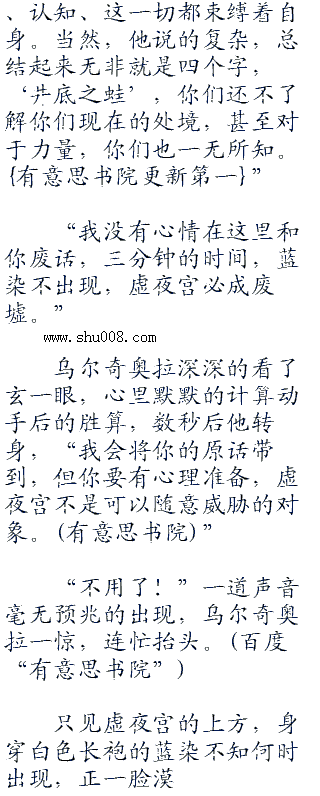 、认知、这一切都束缚着自
身。当然，他说的复杂，总
结起来无非就是四个字，
‘井底之蛙’，你们还不了
解你们现在的处境，甚至对
于力量，你们也一无所知。
{有意思书院更新第一}”
“我没有心情在这里和
你废话，三分钟的时间，蓝
染不出现，虚夜宫必成废
墟。”
www.shu008.com
乌尔奇奥拉深深的看了
玄一眼，心里默默的计算动
手后的胜算，数秒后他转
身，“我会将你的原话带
到，但你要有心理准备，虚
夜宫不是可以随意威胁的对
象。(有意思书院)”
“不用了！”一道声音
毫无预兆的出现，乌尔奇奥
拉一惊，连忙抬头。(百度
“有意思书院”)
只见虚夜宫的上方，身
穿白色长袍的蓝染不知何时
出现，正一脸漠